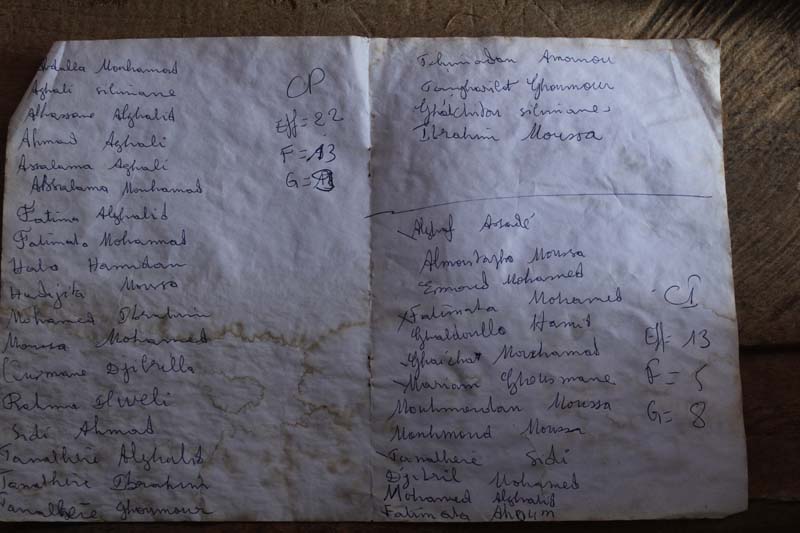 Abdalla Mouhamad
Aghali silimane
Alhassane Alghalid
Ahmad Aghali
Assalama Aghali
Assalama Mouhamad
Fatima Alghalid
Fatimata Mohamad
Habo Hamidan
Hadijita Moussa
Mohamed Ibrahim
Moussa Mohamed
Ousmane Djibrilla
Rahma Ilweli
Sidi Ahmad
Tanalhere Alghalid
Tanalhere Ibrahim
Tanalhere Ghoumour
CP
Eff = 22
F = 13
G =
Amoumou
Ghoumour
silimane
Ibrahim Moussa
Assadé
Moussa
Mohamed
Fatimata Mohamed
Hamid
Ghaicha Mouhamad
Mariam Ghousmane
Moussa
Mouhmoud Moussa
Tanalhere Sidi
Djibril Mohamed
Mohamed Alghalid
Fatimata
CI
Eff = 13
F = 5
G = 8